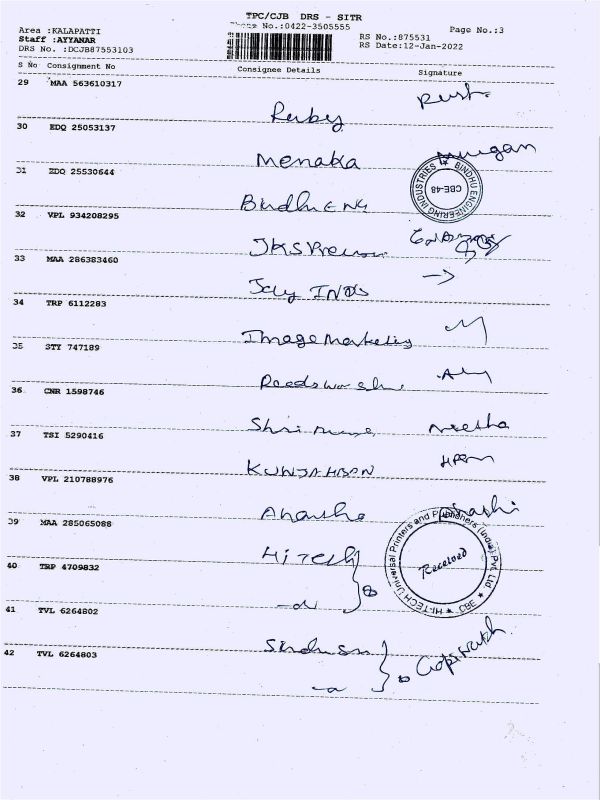 TPC/CJB DRS - SITR
Phone No.:0422-3505555
Page No.:3
Area :KALAPATTI
Staff :AYYANAR
DRS No. :DCJB87553103
RS No.:875531
RS Date:12-Jan-2022
S No Consignment No Consignee Details Signature
29 MAA 563610317
Ruby
30 EDQ 25053137
Menaka Murugan
31 EDQ 25530644
Bindhu ENG
BINDHU ENGINEERING INDUSTRIES ★
CBE-48
32 VPL 934208295
JKS
33 MAA 286383460
Jay INDS
34 TRP 6112283
Image Marketing
35 STY 747189
36 CNR 1598746
Shri Neetha
37 TSI 5290416
38 VPL 210788976
39 MAA 285065088
Hi Tech
HI-TECH Universal Printers and Publishers (India) Pvt. Ltd ★ CBE ★
Received
40 TRP 4709832
41 TVL 6264802
Gopinath
42 TVL 6264803